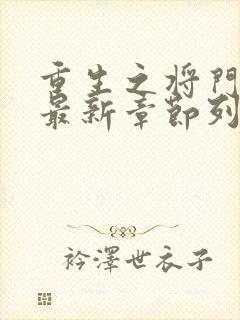 重生之将门
最新章节列
衿澤世衣子